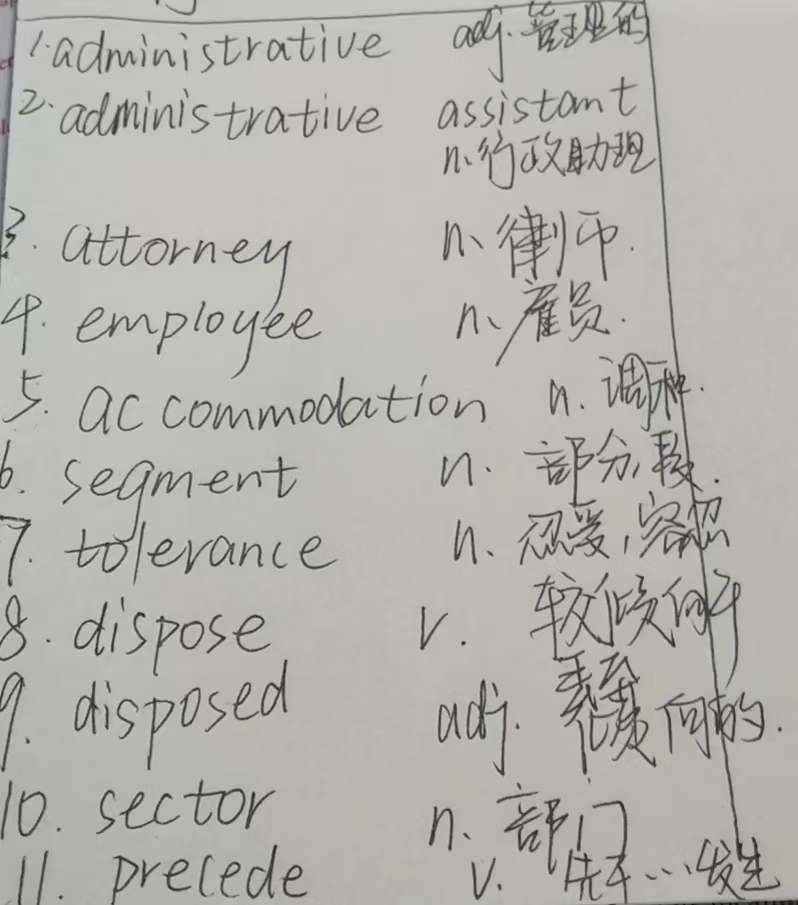 1. administrative adj. 管理的
2. administrative assistant
n. 行政助理
3. attorney n. 律师.
4. employee n. 雇员.
5. accommodation n. 调和.
6. segment n. 部分,段.
7. tolerance n. 忍受,容忍
8. dispose v. 较倾向于
9. disposed adj. 倾向的.
10. sector n. 部门
11. precede v. 先于…发生